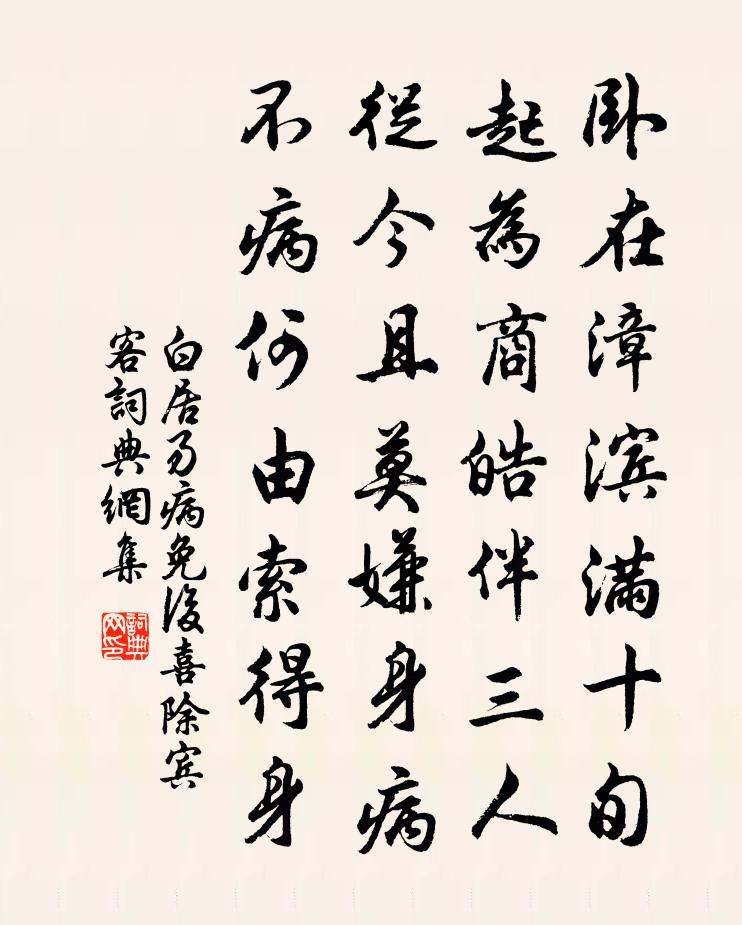 卧在漳滨满十旬
起為商皓伴三人
從今且莫嫌身病
不病何由索得身
白居易病免後喜除宾
客詞典網集
詞典网印